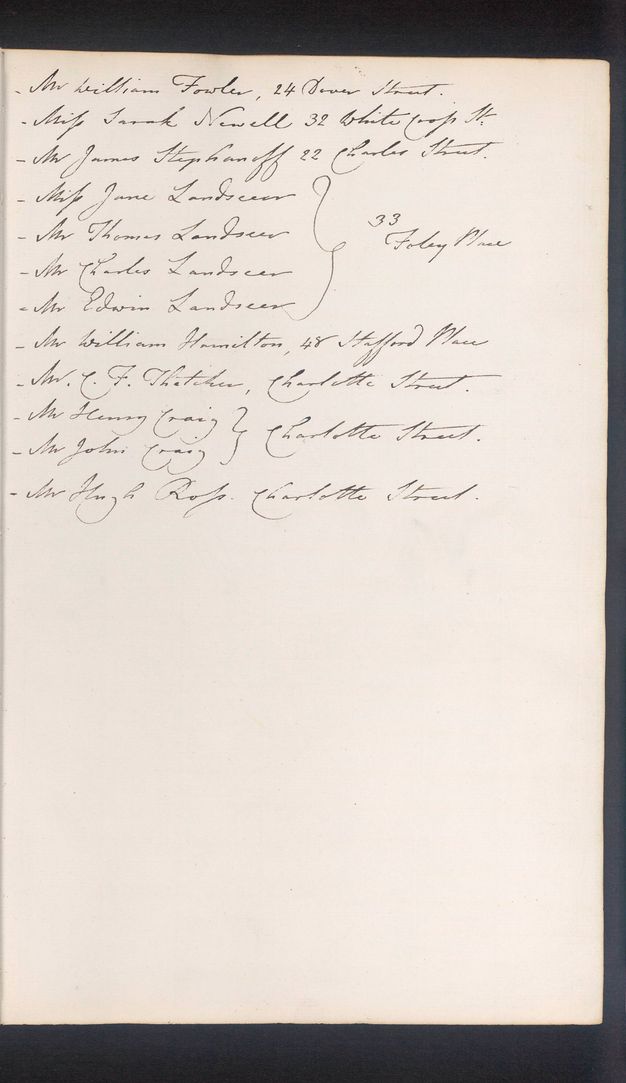 - Mr William Fowler, 24 Dover Street.
- Miss Sarah Newell 32 White Cross St.
- Mr James Stephanoff 22 Charles Street.
- Miss Jane Landseer
- Mr Thomas Landseer
33
Foley Place
- Mr Charles Landseer
- Mr Edwin Landseer
- Mr William Hamilton, 48 Stafford Place
- Mr. C. F. Thatcher, Charlotte Street.
- Mr Henry Craig
- Mr John Craig
Charlotte Street.
- Mr Hugh Ross. Charlotte Street.